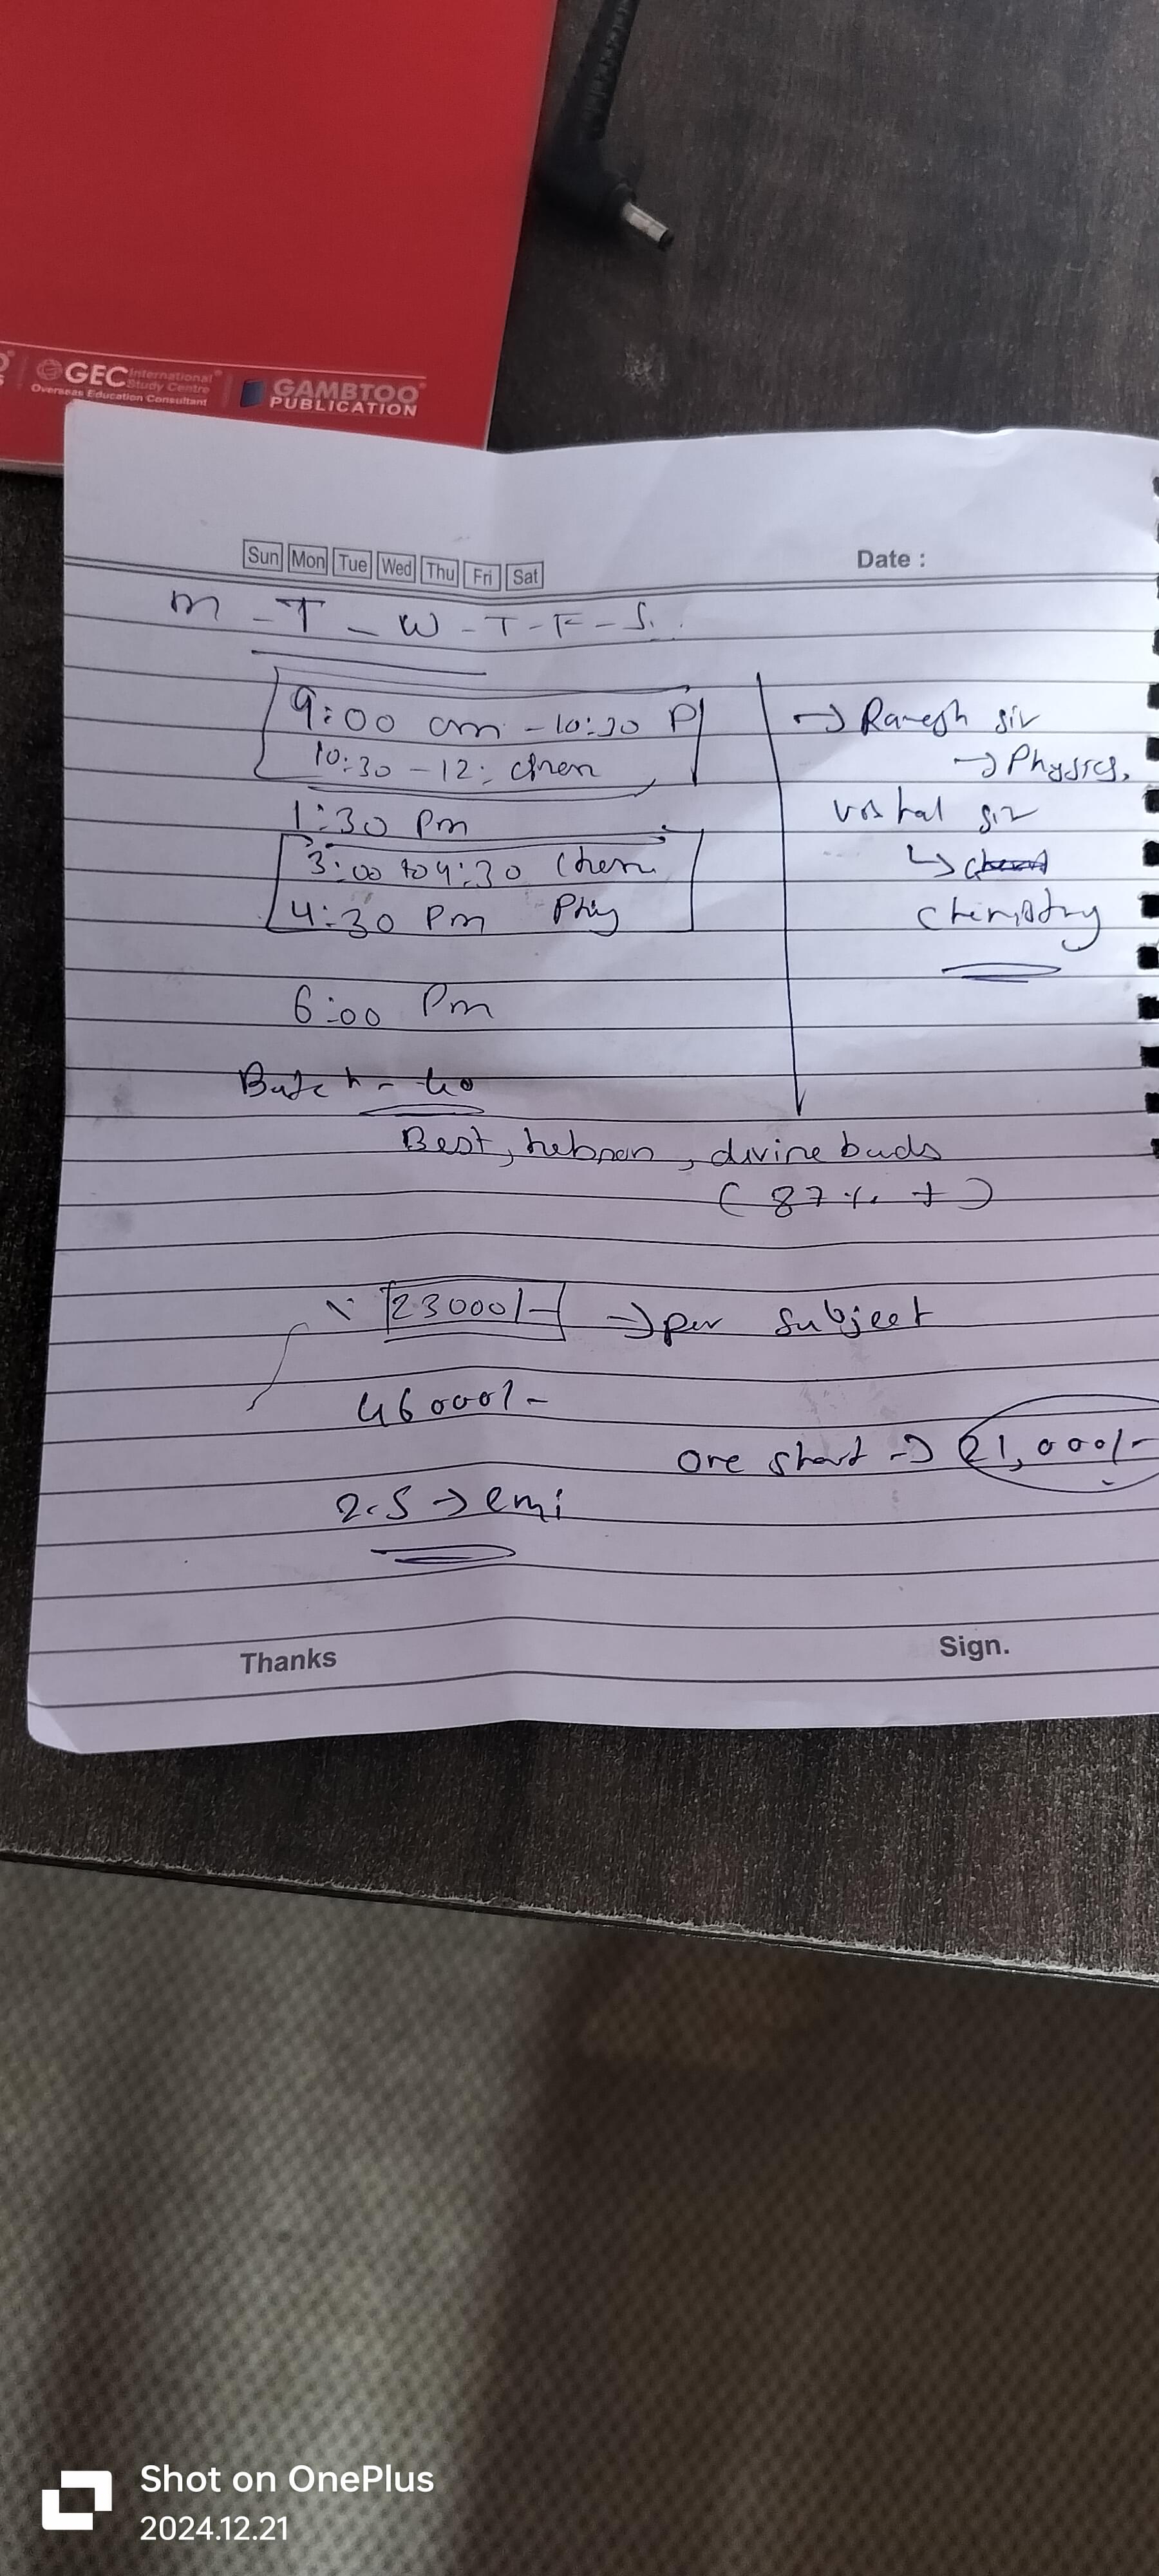 GEC International Study Centre
Overseas Education Consultant
GAMBTOO
PUBLICATION
Sun Mon Tue Wed Thu Fri Sat
Date :
M - T - W - T - F - S
9:00 am - 10:30 P
10:30 - 12: chem
1:30 Pm
3:00 to 4:30 Chem
4:30 Pm Phy
6:00 Pm
→ Ramesh sir
→ Physics,
sir
↳
chemistry
Batch - 40
Best, , divine buds
( 87 % + )
23000/- → per subject
46000/-
one shot → 21,000/-
2.5 → emi
Thanks
Sign.
Shot on OnePlus
2024.12.21